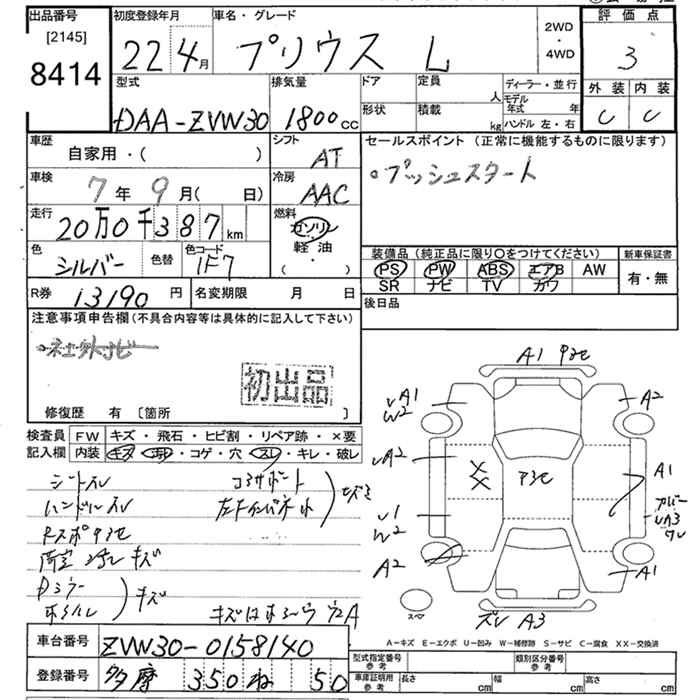 出品番号
[2145]
8414
初度登録年月
22年 4月
車名・グレード
プリウス L
2WD
・
4WD
評価点
3
外装 内装
C C
型式
DAA-ZVW30
排気量
1800cc
ドア
定員
人
形状
積載
kg
ディーラー・並行
モデル年式 年
ハンドル 左・右
車歴
自家用・( )
シフト
AT
車検
7年 9月( 日)
冷房
AAC
走行
20万0千387km
燃料
ガソリン
軽油
( ・ )
色
シルバー
色替
色コード
1F7
R券 13190円
名変期限 月 日
セールスポイント (正常に機能するものに限ります)
○プッシュスタート
装備品 (純正品に限り○をつけてください)
PS PW ABS エアB AW
SR ナビ TV カワ
新車保証書
有・無
後日品
注意事項申告欄(不具合内容等は具体的に記入して下さい)
社外ナビ
初出品
修復歴 有 [箇所 ]
検査員記入欄
FW キズ・飛石・ヒビ割・リペア跡・×要
内装 キズ・汚れ・コゲ・穴・スレ・キレ・破レ
シートスレ
ハンドルスレ
キズ
A1
UA1
W2
A2
UA2
XX
A1
U1
W2
UA3
A2
A1
スペ
A3
車台番号 ZVW30-0158140
登録番号 多摩 350 ね 50
A-キズ E-エクボ U-凹み W-補修跡 S-サビ C-腐食 XX-交換済
型式指定番号
参考
類別区分番号
参考
車庫証明用
参考
長さ cm
幅 cm
高さ cm